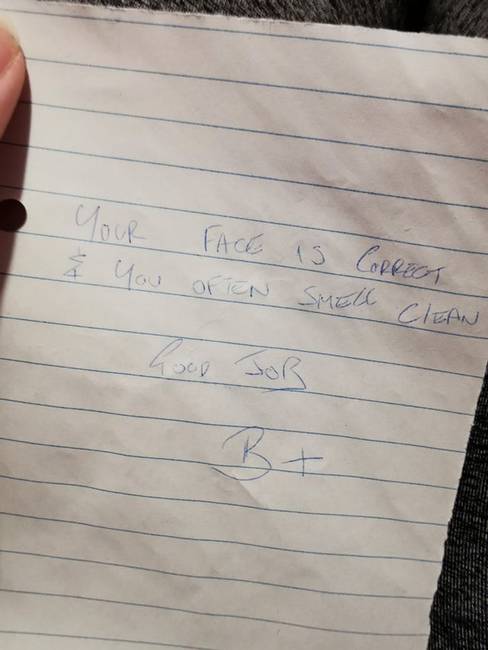 YOUR FACE IS CORRECT
& YOU OFTEN SMELL CLEAN
GOOD JOB
B+